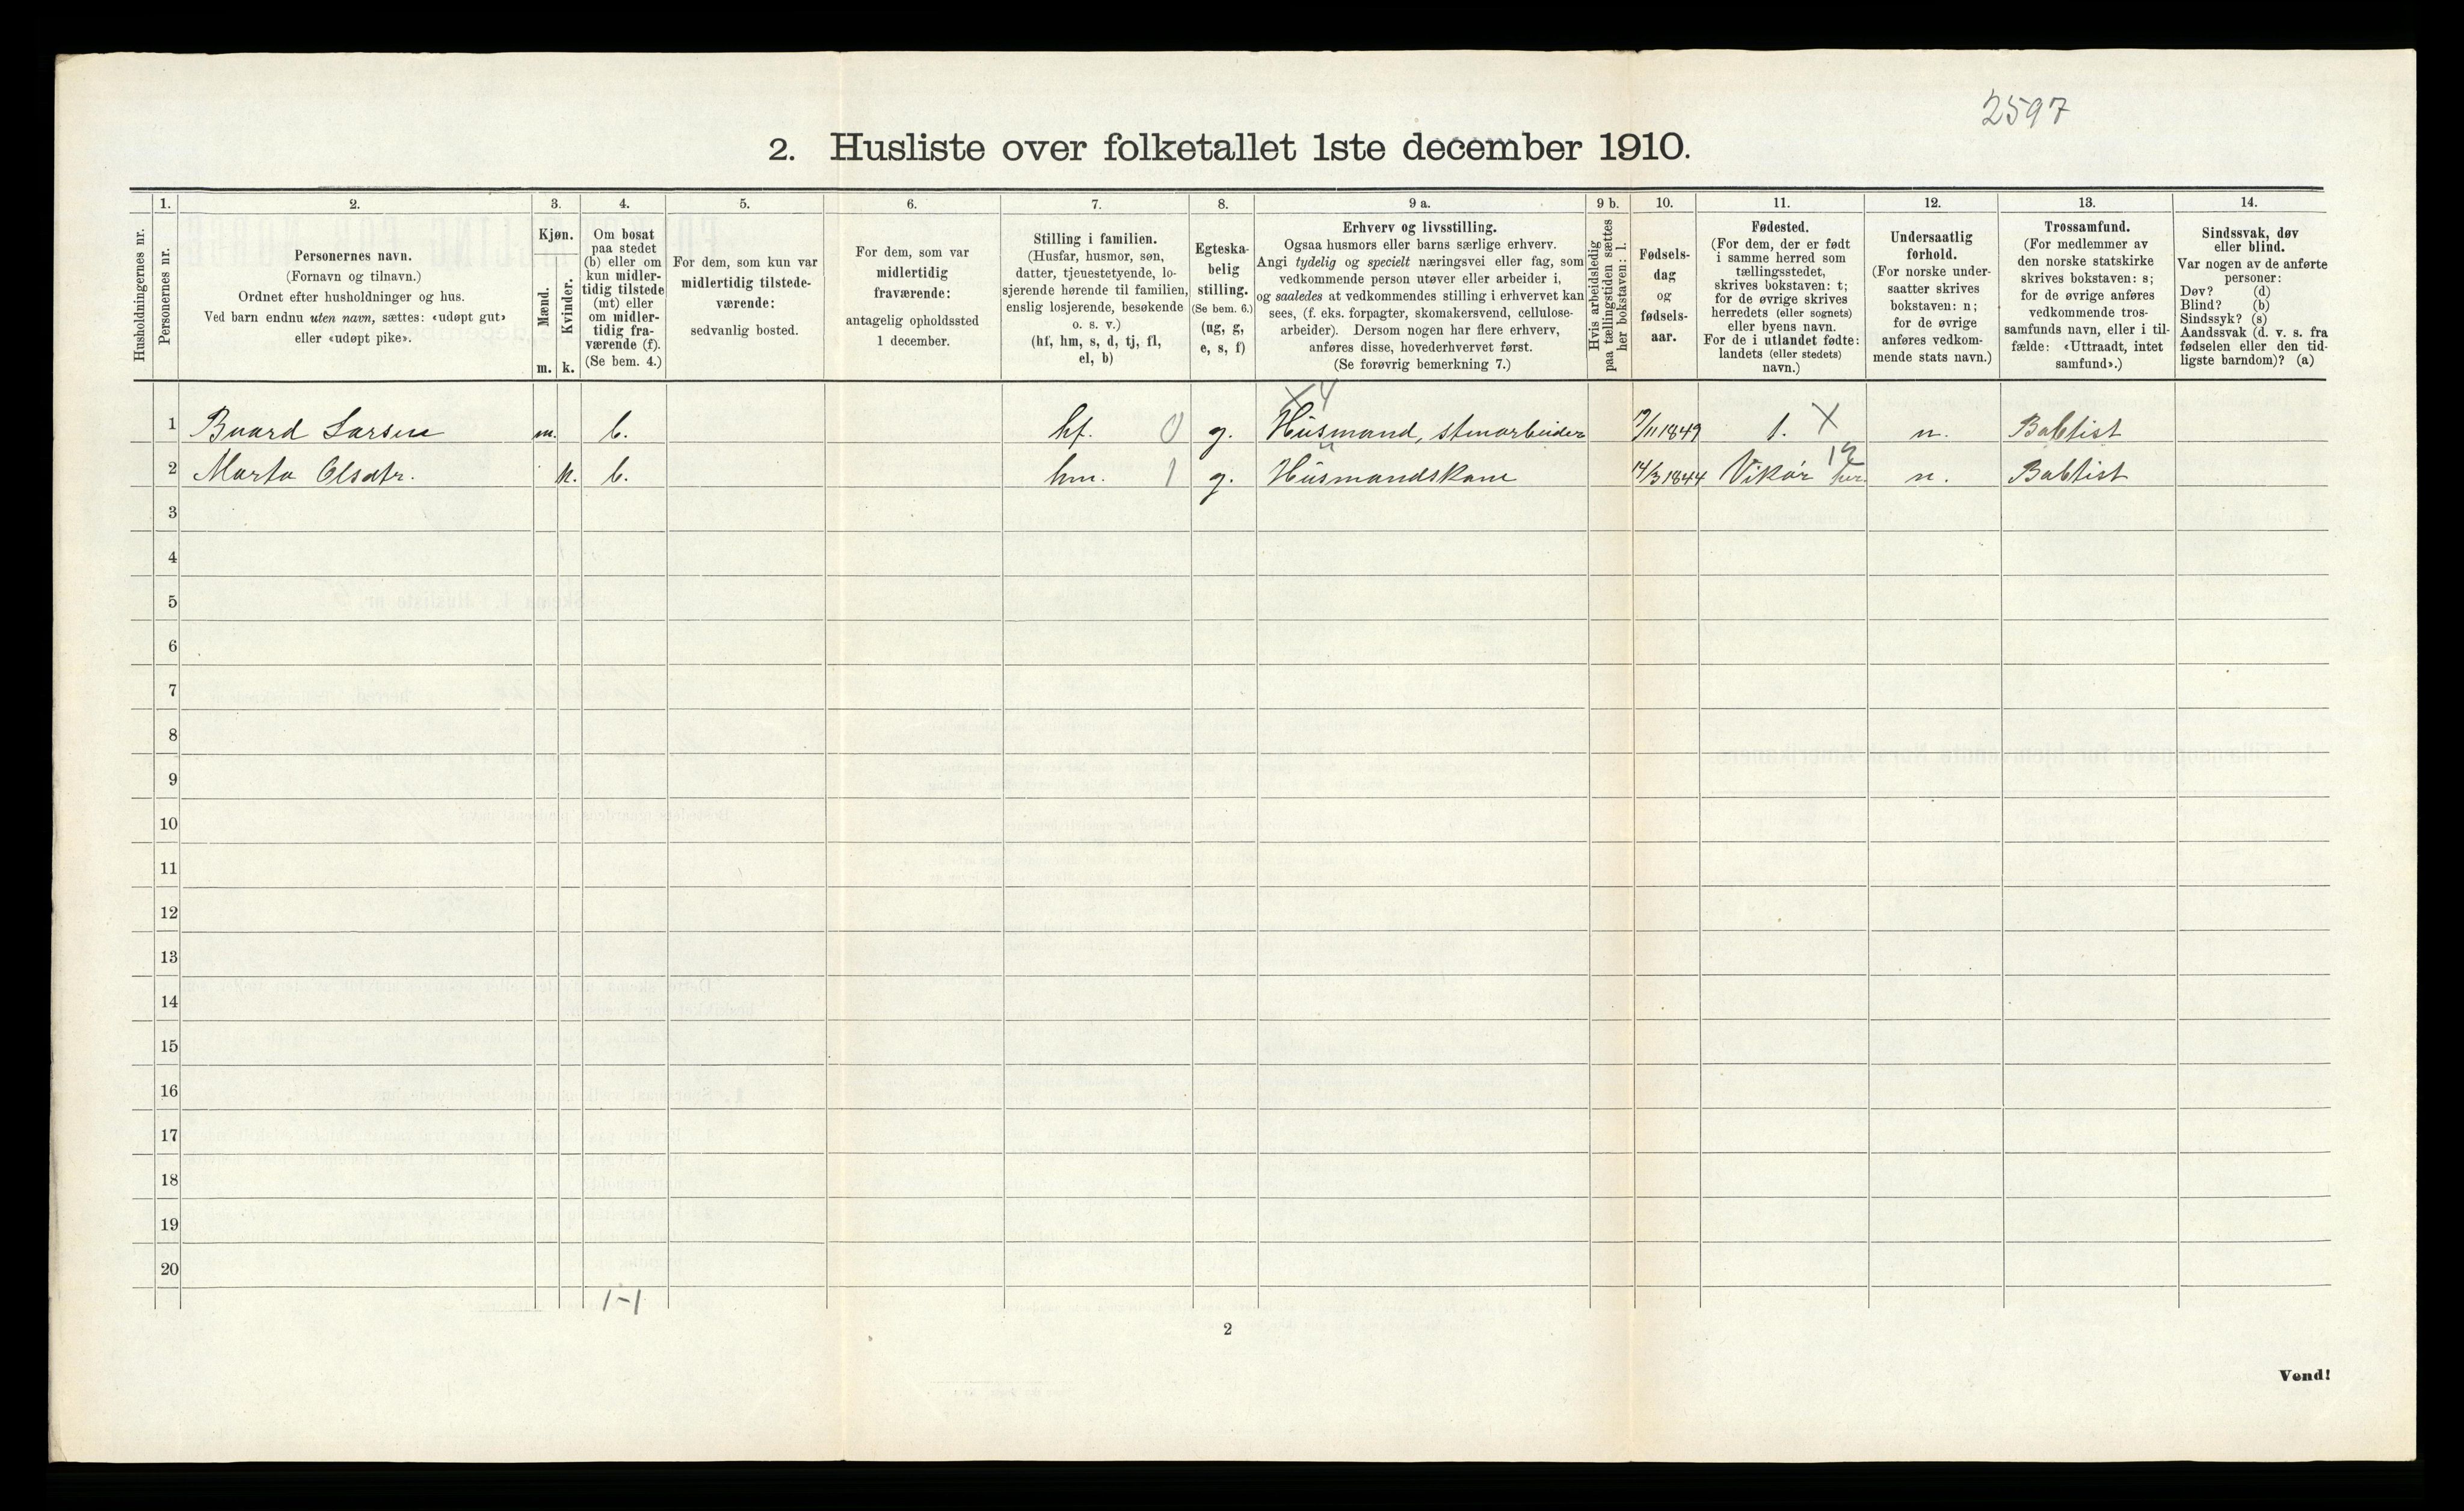 2597
2. Husliste over folketallet 1ste december 1910.
1. 2. 3. 4. 5. 6. 7. 8. 9 a. 9 b. 10. 11. 12. 13. 14.
Husholdningernes nr.
Personernes nr.
Personernes navn.
(Fornavn og tilnavn.)
Ordnet efter husholdninger og hus.
Ved barn endnu uten navn, sættes: «udøpt gut»
eller «udøpt pike».
Kjøn.
Mænd.
Kvinder.
m. k.
Om bosat
paa stedet
(b) eller om
kun midler-
tidig tilstede
(mt) eller
om midler-
tidig fra-
værende (f).
(Se bem. 4.)
For dem, som kun var
midlertidig tilstede-
værende:
sedvanlig bosted.
For dem, som var
midlertidig
fraværende:
antagelig opholdssted
1 december.
Stilling i familien.
(Husfar, husmor, søn,
datter, tjenestetyende, lo-
sjerende hørende til familien,
enslig losjerende, besøkende
o. s. v.)
(hf, hm, s, d, tj, fl,
el, b)
Egteska-
belig
stilling.
(Se bem. 6.)
(ug, g,
e, s, f)
Erhverv og livsstilling.
Ogsaa husmors eller barns særlige erhverv.
Angi tydelig og specielt næringsvei eller fag, som
vedkommende person utøver eller arbeider i,
og saaledes at vedkommendes stilling i erhvervet kan
sees, (f. eks. forpagter, skomakersvend, cellulose-
arbeider). Dersom nogen har flere erhverv,
anføres disse, hovederhvervet først.
(Se forøvrig bemerkning 7.)
Hvis arbeidsledig
paa tællingstiden sættes
her bokstaven: l.
Fødsels-
dag
og
fødsels-
aar.
Fødested.
(For dem, der er født
i samme herred som
tællingsstedet,
skrives bokstaven: t;
for de øvrige skrives
herredets (eller sognets)
eller byens navn.
For de i utlandet fødte:
landets (eller stedets)
navn.)
Undersaatlig
forhold.
(For norske under-
saatter skrives
bokstaven: n;
for de øvrige
anføres vedkom-
mende stats navn.)
Trossamfund.
(For medlemmer av
den norske statskirke
skrives bokstaven: s;
for de øvrige anføres
vedkommende tros-
samfunds navn, eller i til-
fælde: «Uttraadt, intet
samfund».)
Sindssvak, døv
eller blind.
Var nogen av de anførte
personer:
Døv? (d)
Blind? (b)
Sindssyk? (s)
Aandssvak (d. v. s. fra
fødselen eller den tid-
ligste barndom)? (a)
X 4
1 Baard Larsen m. b. hf. 0 g. Husmand, stenarbeider 17/11 1849 t. X n. Babtist
12
2 Marta Olsdtr. k. b. hm. 1 g. Husmandskone 14/3 1844 Vikør her. n. Babtist
3
4
5
6
7
8
9
10
11
12
13
14
15
16
17
18
19
20
1-1
2
Vend!